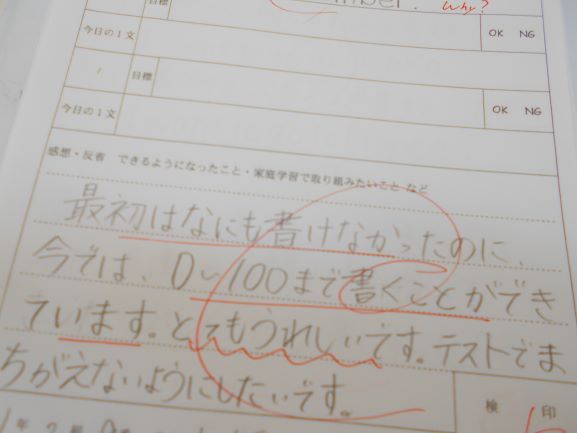 目標
Why?
今日の1文
OK NG
目標
今日の1文
OK NG
感想・反省 できるようになったこと・家庭学習で取り組みたいこと など
最初はなにも書けなかったのに、
今では、0~100まで書くことができ
ています。とてもうれしいです。テストでま
ちがえないようにしたいです。
検 印